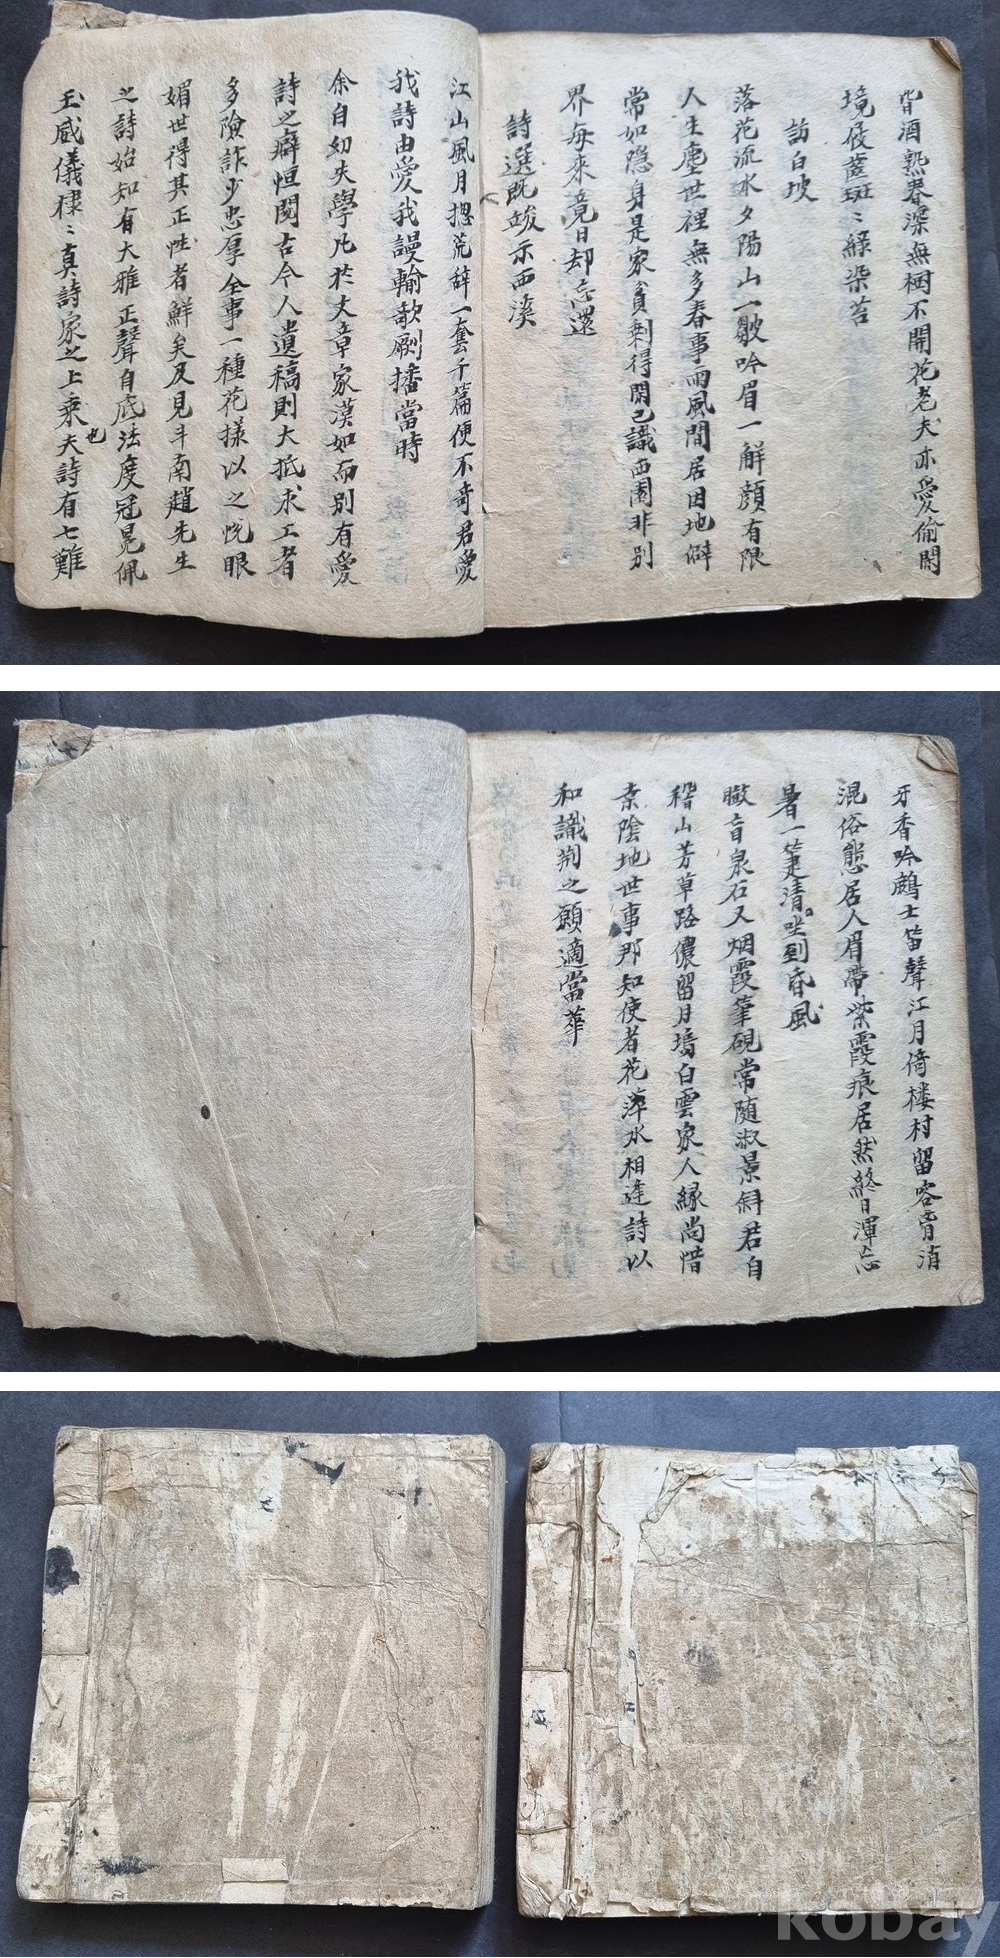 皆酒熟春深無個不開花老夫亦愛偷閒
境屐齒斑々綠染苔
訪白坡
落花流水夕陽山一皺吟眉一解顏有限
人生塵世裡無多春事雨風間居因地僻
常如隱身是家貧剩得閒已識西園非別
界每來竟日却忘還
詩選既竣示西溪
江山風月摠荒辞一套千篇便不奇君愛
我詩由愛我謾輸歌刷播當時
余自幼失學凡於文章家漠如而別有愛
詩之癖恒閱古今人遺稿則大抵求工者
多險詐少忠厚全事一種花樣以之悅眼
媚世得其正性者鮮矣及見斗南趙先生
之詩始知有大雅正聲自底法度冠冕佩
玉威儀棣々真詩家之上乘也夫詩有七難
牙香吟鷓士笛聲江月倚楼村留客肯消
混俗態居人眉帶紫霞痕居然終日渾忘
暑一簟清坐到昏風
嶽盲泉石又烟霞筆硯常随淑景斜君自
稽山芳草路儂留月塢白雲家人緣尚惜
桒陰地世事那知使者花萍水相逢詩以
和識荊之願適當華
kobay